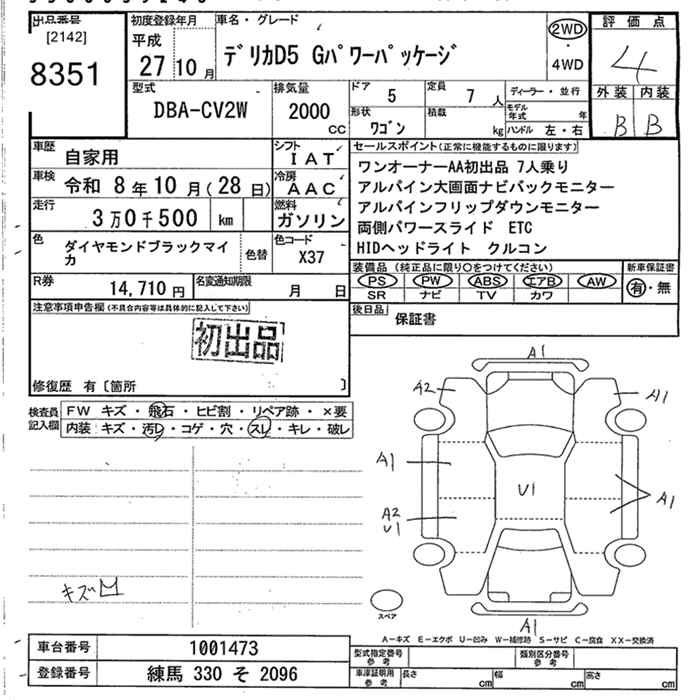 出品番号
[2142]
8351
初度登録年月
平成
27 10 月
車名・グレード
デリカD5 Gパワーパッケージ
2WD
・
4WD
評価点
4
外装 内装
B B
型式
DBA-CV2W
排気量
2000
CC
ドア
5
定員
7 人
形状
ワゴン
積載
kg
ディーラー・並行
モデル年式 年
ハンドル 左・右
車歴
自家用
シフト
IAT
車検
令和 8年10月(28日)
冷房
AAC
走行
3万0千500 km
燃料
ガソリン
色
ダイヤモンドブラックマイカ
色替
色コード
X37
R券
14,710円
名変通知期限
月 日
セールスポイント(正常に機能するものに限ります)
ワンオーナーAA初出品 7人乗り
アルパイン大画面ナビバックモニター
アルパインフリップダウンモニター
両側パワースライド ETC
HIDヘッドライト クルコン
装備品(純正品に限り○をつけてください)
PS PW ABS エアB AW
SR ナビ TV カワ
新車保証書
有・無
後日品
保証書
注意事項申告欄(不具合内容等は具体的に記入して下さい)
初出品
修復歴 有〔箇所 〕
検査員記入欄
FW キズ・飛石・ヒビ割・リペア跡・×要
内装 キズ・汚レ・コゲ・穴・スレ・キレ・破レ
キズ凹
A1
A2
A1
A1
U1
A1
A2
U1
スペア
A1
A-キズ E-エクボ U-凹み W-補修跡 S-サビ C-腐食 XX-交換済
車台番号
1001473
登録番号
練馬 330 そ 2096
型式指定番号
参考
類別区分番号
参考
車庫証明用
参考
長さ cm
幅 cm
高さ cm